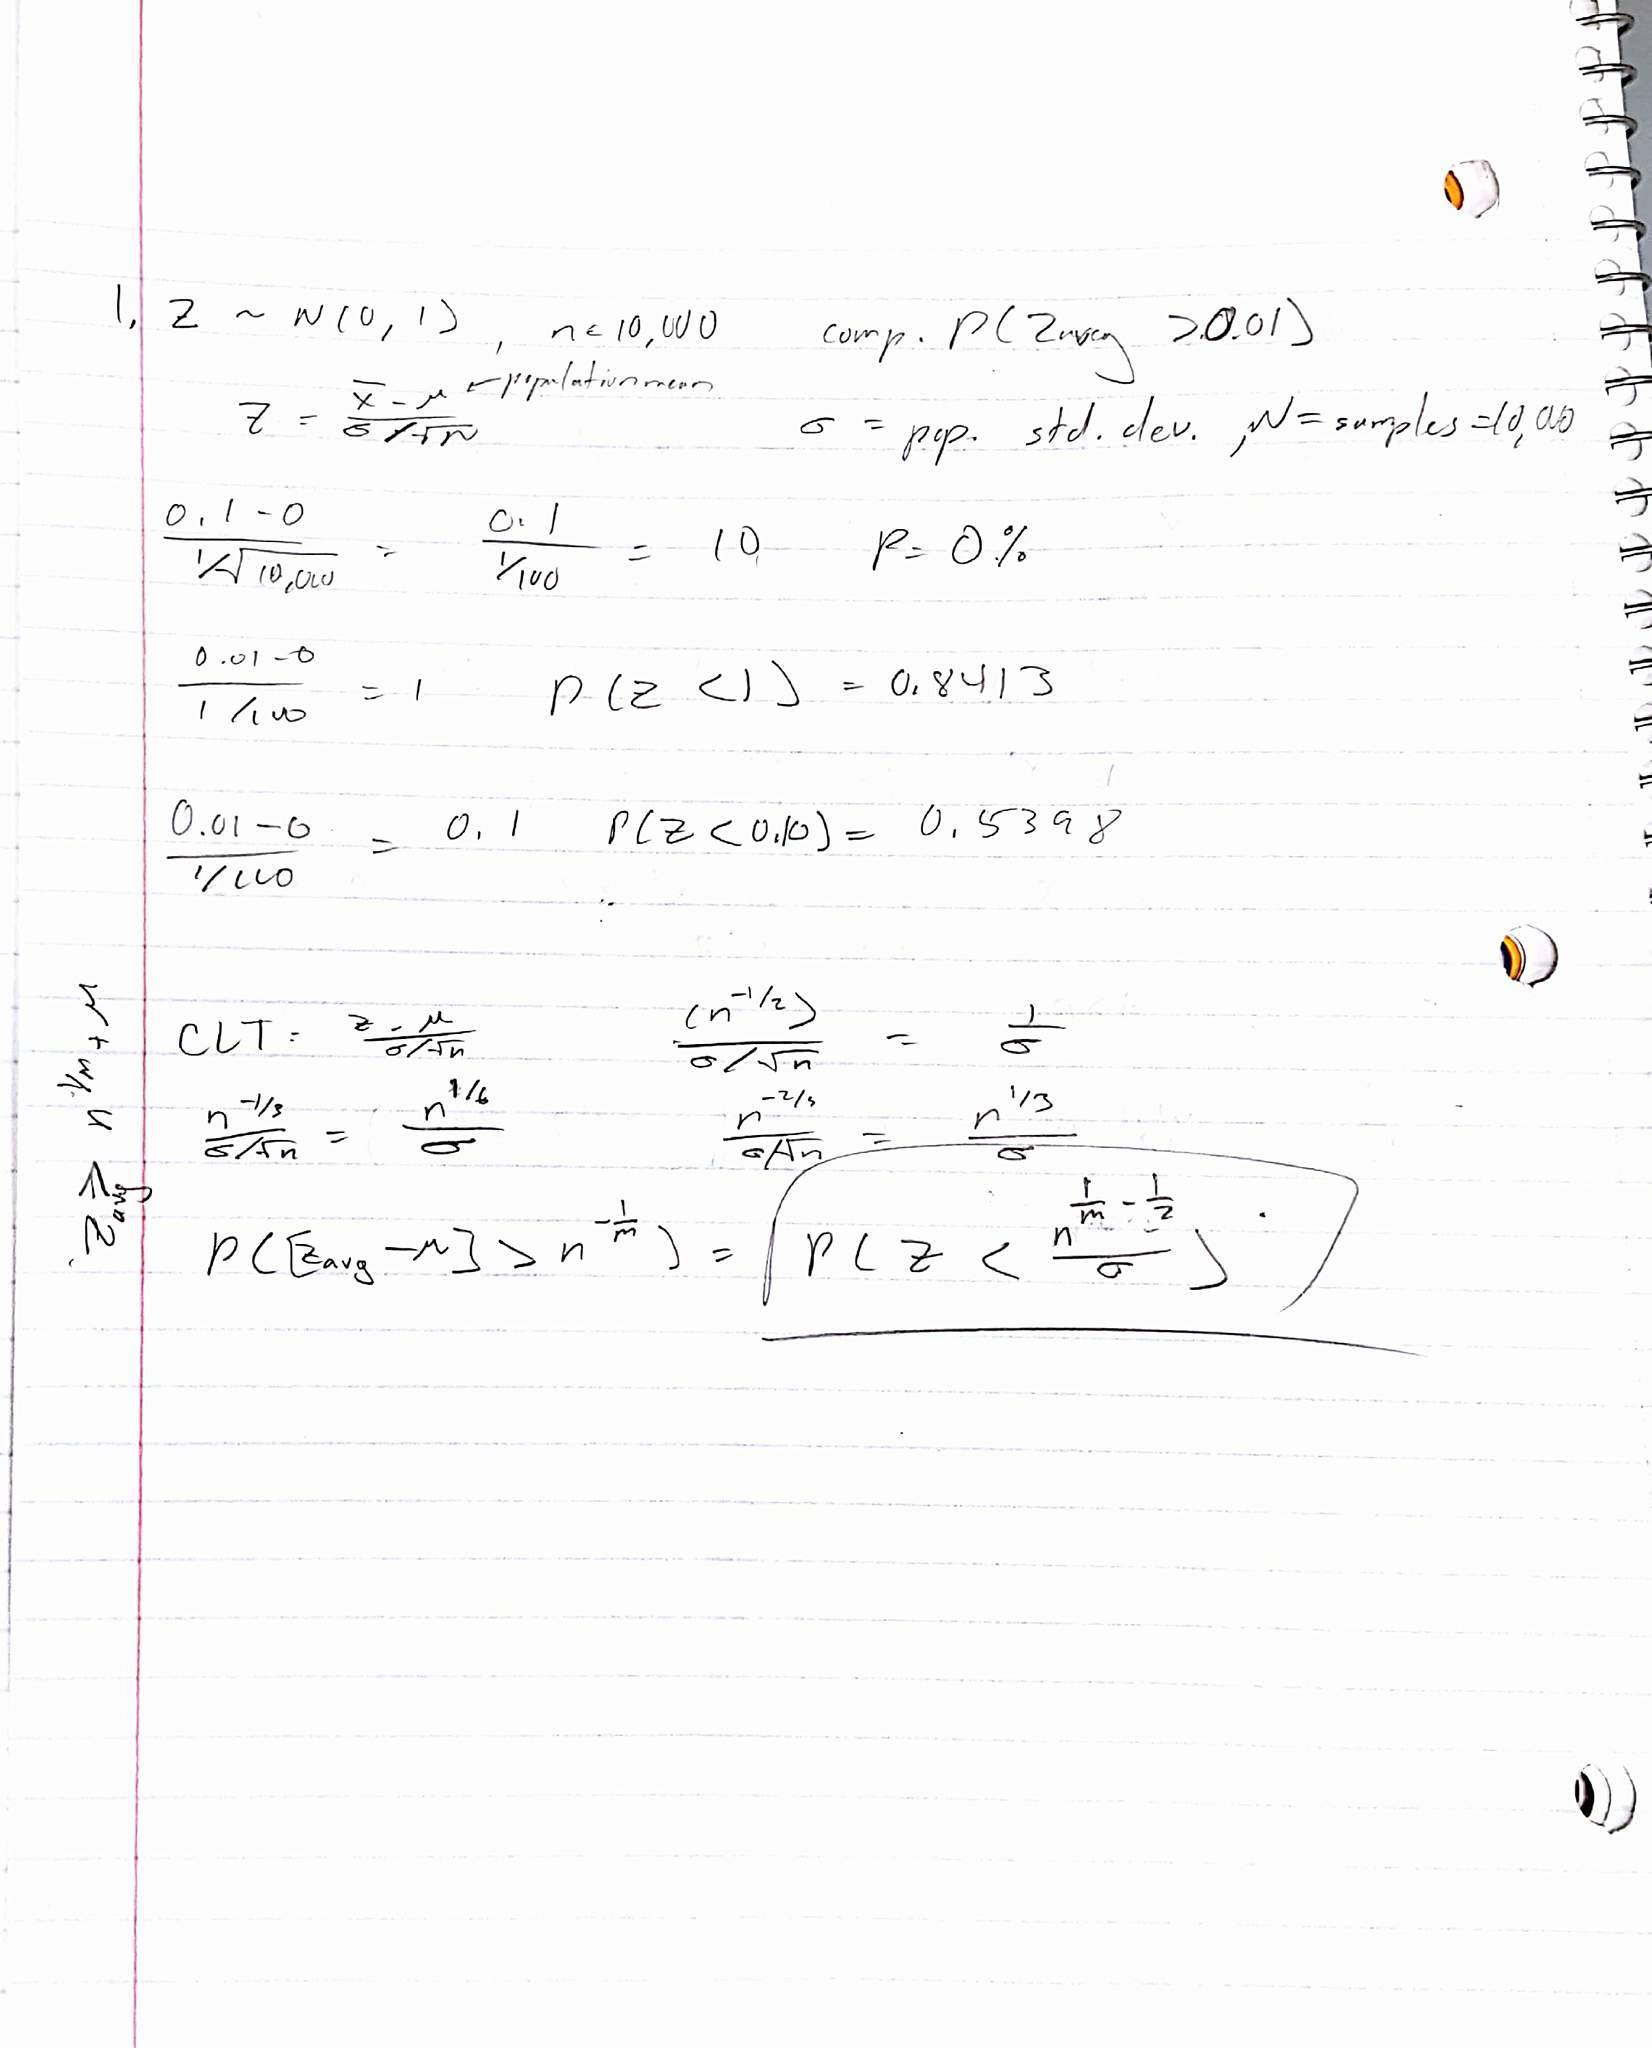 1. Z ~ N(0, 1), n = 10,000 comp. P(Zavg > 0.01)
Z = (x̄ - μ)/(σ/√N) ← population mean σ = pop. std. dev., N = samples = 10,000
(0.1 - 0)/(1/√10,000) = 0.1/(1/100) = 10 P = 0%
(0.01 - 0)/(1/100) = 1 P(Z < 1) = 0.8413
(0.01 - 0)/(1/100) = 0.1 P(Z < 0.10) = 0.5398
CLT = (z - μ)/(σ/√n) (n^(-1/2))/(σ/√n) = 1/σ
n^(-1/3)/(σ/√n) = n^(1/6)/σ n^(-2/3)/(σ/√n) = n^(1/3)/σ
P([Zavg - μ] > n^(-1/m)) = P(Z < n^(1/m - 1/2)/σ)